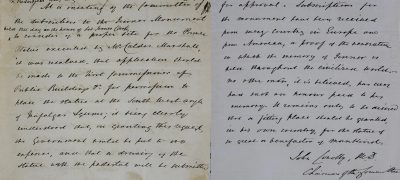 At a meeting of the Committee of
the Subscribers to the Jenner Monument
held this day in the house of Sir James Clark
to consider of a proper site for the Bronze
Statue executed by Mr Calder Marshall,
it was resolved, that application should
be made to the First Commissioner of
Public Buildings &c for permission to
place the statue at the South West angle
of Trafalgar Square; it being clearly
understood that, in granting this request,
the Government would be put to no
expense, and that a drawing of the
statue with the pedestal will be submitted
for approval. Subscriptions for
the monument have been received
from many countries in Europe and
from America, a proof of the veneration
in which the memory of Jenner is
held throughout the civilized world.
No other man, it is believed, has ever
had such an honour paid to his
memory. It remains only to be desired
that a fitting place should be granted,
in his own country, for the statue of
so great a benefactor of mankind.
John M.D.
Chairman of the Committee